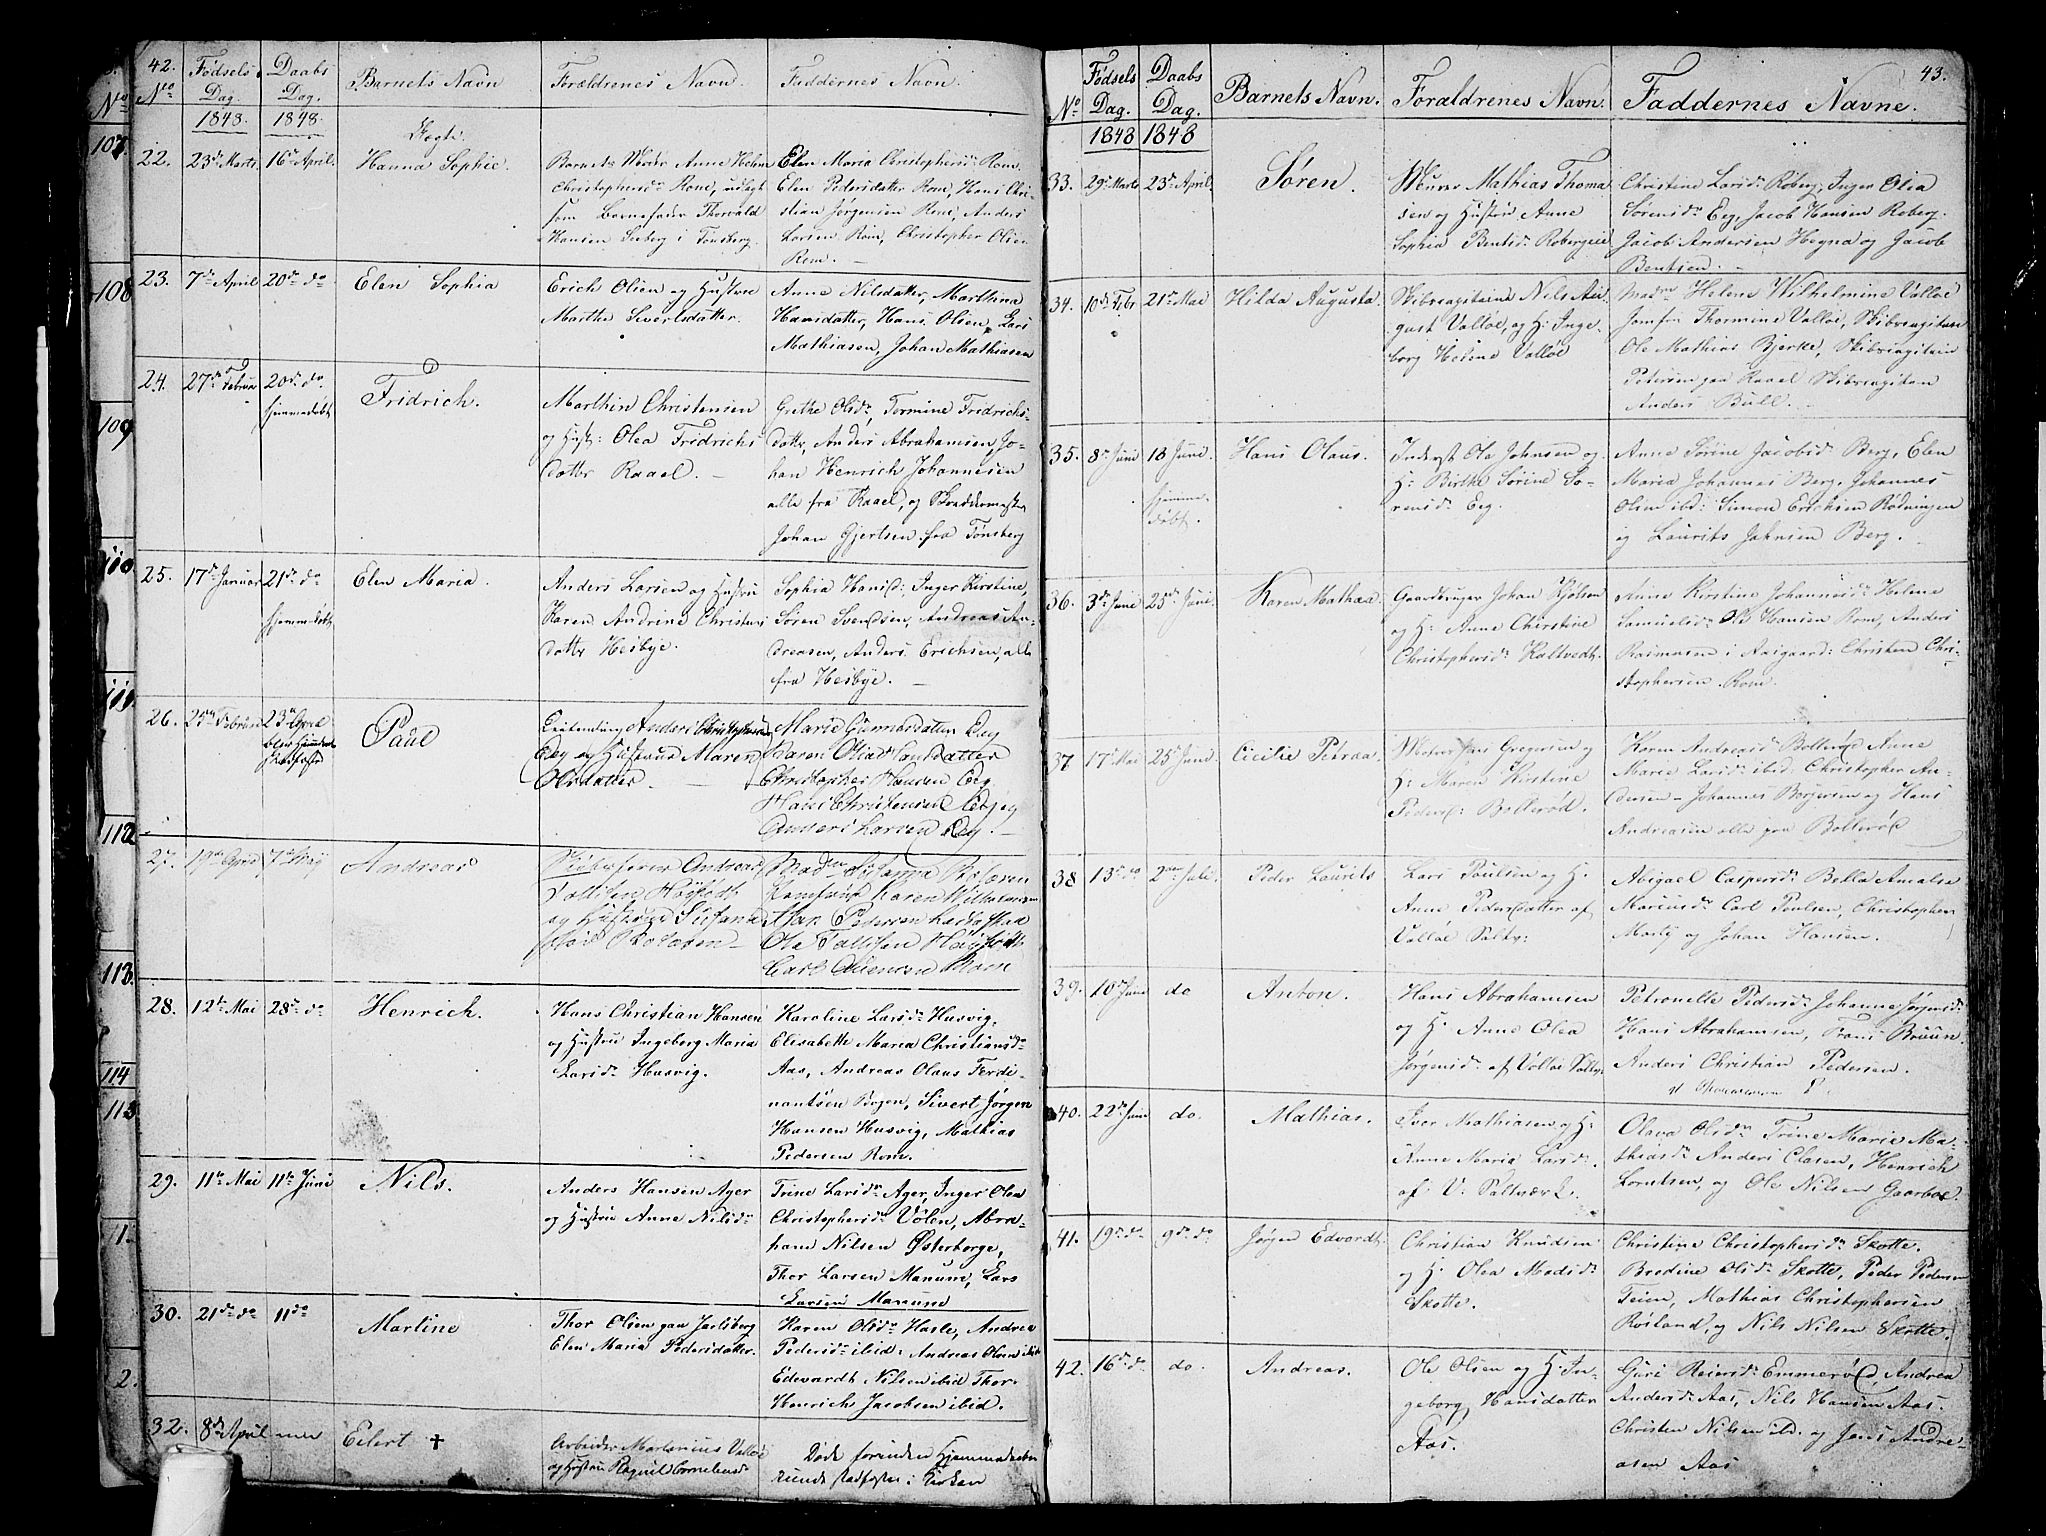 42.
No
Fødsels Dag.
Daabs Dag.
Barnets Navn
Forældrenes Navn.
Faddernes Navn.
1848.
1848.
22.
23de Marts
16de April
Hanna Sophie.
Barnets Moder Anne Helene
Christophersdr Rom, udlagt
som Barnefader Thorvald
Hansen Seeberg i Tønsberg.
Elen Maria Christophersdr Rom.
Elen Pedersdatter Rom, Hans Chri-
stian Jørgensen Rom, Anders
Larsen Rom, Christopher Olsen
Rom.
23.
7de April
20de do
Elen Sophia
Erich Olsen og Hustru
Marthe Sivertsdatter.
Anne Nilsdatter, Marthina
Hansdatter, Hans Olsen, Lars
Mathiasen, Johan Mathiasen
24.
27de Februar
20de do
hjemmedøbt
Fridrich.
Marthin Christensen
og Hustr: Olea Fridrichs
datter Raael.
Grethe Olsdr, Tormine Fridrichs-
datter, Anders Abrahamsen, Jo-
han Henrich Johannesen
alle fra Raael, og Skræddermester
Johan Gjertsen fra Tønsberg
25.
17de Januar
21de do
hjemmedøbt
Elen Maria.
Anders Larsen og Hustru
Karen Andrine Christens
datter Hesbye.
Sophia Hansd: Inger Kirstine,
Søren Svendsen, Andreas An-
dreasen, Anders Erichsen, alle
fra Hesbye.
26.
25de Februar
23de April
Paul
Anders Christophersen
Eeg og Hustrue Maren
Olsdatter.
Marie Gunnersdatter Eeg
Karen Olea Hansdatter
Christopher Hansen Eeg
Hans Christensen
Anders Larsen Eeg.
27.
19de April
7de Maj
Andreas
Skibsfører Andreas
Tollefsen Høyjordt
og Hustrue Susanna
Ole Tollefsen Høyjordt
28.
12te Mai
28de do
Henrich.
Hans Christian Hansen
og Hustru Ingeborg Maria
Larsdr Husvig.
Karoline Larsdr Husvig,
Elisabeth Maria Christiansdr
Aas, Andreas Olaus Ferdi-
nantsen Bogen, Sivert Jørgen
Hansen Husvig, Mathias
Pedersen Rom.
29.
11te Mai
11te Juni
Nils.
Anders Hansen Ager
og Hustru Anne Nilsdr
Trine Larsdr Ager, Inger Olea
Christophersdr Vølen, Abra-
ham Nilsen Østerborge,
Thor Larsen Manum, Lars
Larsen Manum
30.
21de do
11 do
Martine
Thor Olsen paa Jarlsberg
Elen Maria Pedersdatter.
Karen Olsdr Hasle, Andrea
Pedersdr ibid: Andreas Olsen ibid
Edevardt Nilsen ibid Thor
Henrich Jacobsen ibid.
32.
8de April
Eilert †
Arbeider Martinius Valløe
og Hustru Ragnil Corneliusdr
Døde forinden Hjemmedaaben
kunde stadfæstes i Kirken
107
108
109
110
111
112
113
114
1.
2.
43.
No
Fødsels Dag.
Daabs Dag.
Barnets Navn.
Forældrenes Navn.
Faddernes Navne.
1848
1848
33.
29de Marts
23de April
Søren.
Muurer Mathias Thoma
sen og Hustru Anne
Sophia Bentsdr Robergeie
Christine Larsdr Roberg, Inger Olea
Sørensdr Eeg, Jacob Hansen Roberg.
Jacob Andersen Hegna og Jacob
Bentsen.
34.
10de Febr
21de Mai
Hilda Augusta.
Skibscapitaine Nils Au-
gust Valløe, og H: Inge-
borg Helene Valløe
Madme Helene Wilhelmine Valløe
Jomfru Thormine Valløe, Skibscapitain
Ole Mathias Bjerke, Skibscapitain
Petersen paa Raael Skibscapitain
Anders Bull.
35.
8de Juni
18 Juni.
hjemme-
døbt.
Hans Olaus.
Inderst Ole Johnsen og
H: Birthe Sørine Sø-
rensdr Eeg.
Anne Sørine Jacobsdr Berg, Elen
Maria Johannes Berg, Johannes
Olsen ibid: Simon Erichsen Rødningen
og Laurits Johnsen Berg.
36.
3de Juni
25de Juni.
Karen Mathea.
Gaardbruger Johan Kjølsen
og H: Anne Christine
Christophersdr Kaltvedt.
Anne Kirstine Johannesdr Helene
Samuelsdr Ole Hansen Rom, Anders
Rasmusen i Aaigaard: Christen Chri-
stophersen Rom.
37
17de Mai
25de Juni
Cicilie Petrea.
Gregersen og
H: Maren Kirstine
Pedersd: Bollerød.
Karen Andreasdr Bollerød Anne
Marie Larsdr ibid: Christopher An-
dersen Johannes Borgersen og Hans
Andreasen alle paa Bollerød
38
13de do
2den Juli.
Peder Laurits
Lars Poulsen og H:
Anne Pedersdatter af
Valløe Saltv:
Abigael Caspersdr Bella Amalia
Mariusdr Carl Poulsen, Christopher
Marty og Johan Hansen.
39.
10de Juni
do
Anton.
Hans Abrahamsen
og H: Anne Olea
Jørgensdr af Valløe Saltv.
Petronelle Pedersdr Johanne Jørgensdr
Hans Abrahamsen, Frans Bruun.
Anders Christian Pedersen.
40.
22de Juni
do.
Mathias.
Iver Mathiasen og H:
Anne Maria Larsdr
af V: Saltværk.
Olava Olsdr Trine Marie Ma-
thiasdr Anders Clasen, Henrich
Lorntsen, og Ole Nilsen Gaarboe
41.
19de do
9de do
Jørgen Edvardt.
Christian Knudsen
og H: Olea Madsdr
Skotte.
Christine Christophersdr Skotte.
Bredine Olsdr Skotte, Peder Pedersen
Teien, Mathias Christophersen
Røsland, og Nils Nilsen Skotte.
42.
16de do
do.
Andreas.
Ole Olsen og H: In-
geborg Hansdatter
Aas.
Guri Reiersdr Emmerød, Andrea
Andersdr Aas, Nils Hansen Aas.
Christen Nilsen ibd. og Jens Andre-
asen Aas